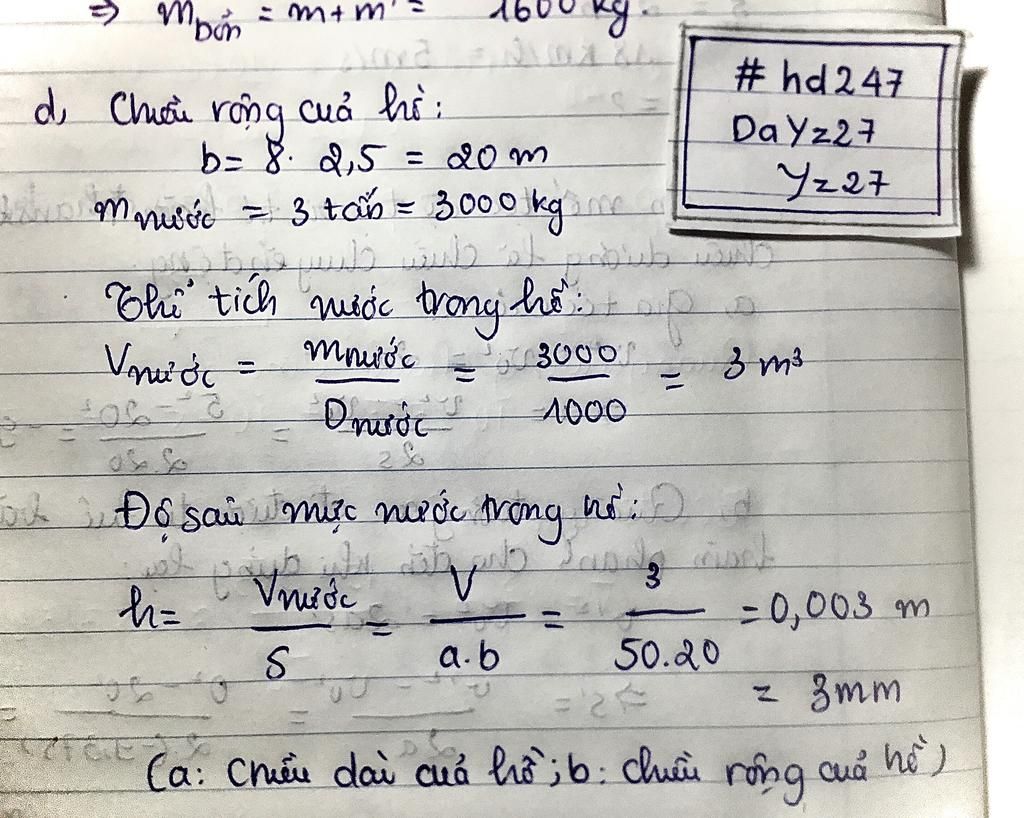 => m bùn = m + m' = 1600 kg.
# hd247
DaYz27
Yz27
d, Chiều rộng của hồ:
b = 8 . 2,5 = 20 m
m nước = 3 tấn = 3000 kg
Thể tích nước trong hồ:
V nước = m nước / D nước = 3000 / 1000 = 3 m³
Độ sâu mực nước trong hồ:
h = V nước / S = V / a.b = 3 / 50.20 = 0,003 m
= 3mm
(a: chiều dài của hồ; b: chiều rộng của hồ)